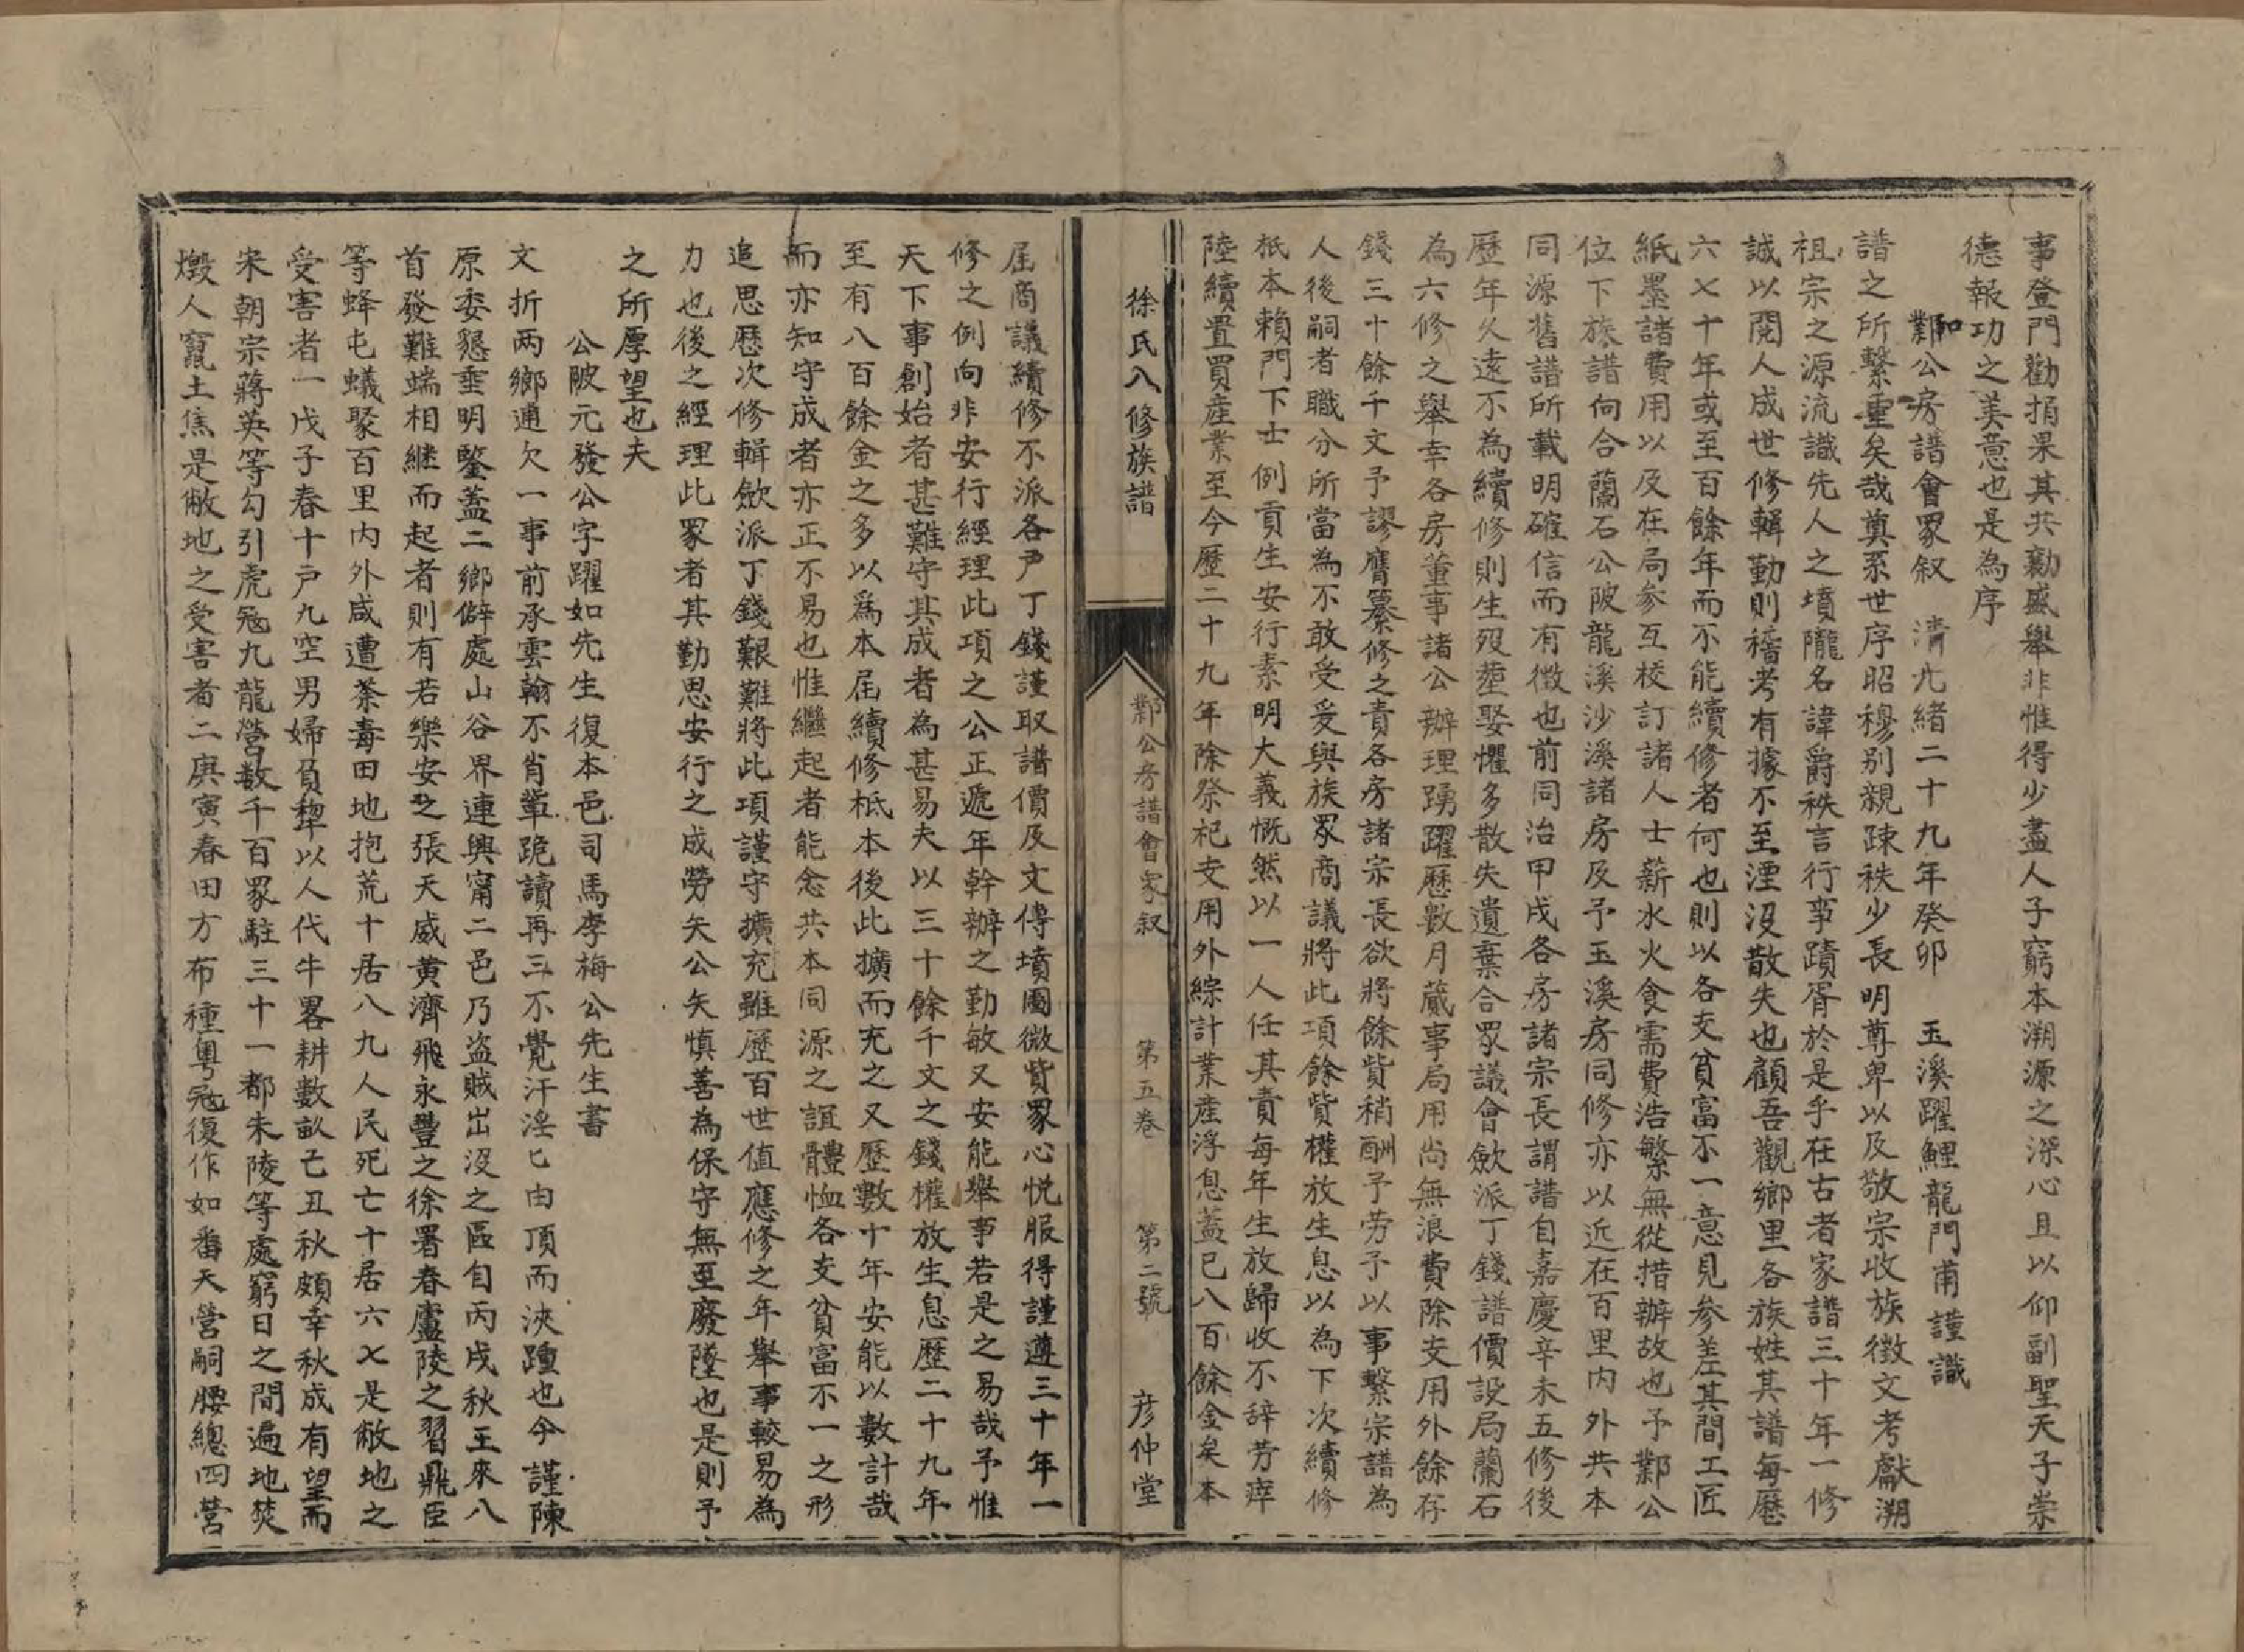 事登門勸捐果其共勷盛舉非惟得少盡人子窮本溯源之深心且以仰副聖天子崇
德報功之美意也是為序
和鄴公房譜會眾叙 清光緒二十九年癸卯 玉溪躍鯉龍門甫謹識
譜之所繫重矣哉奠系世序昭穆别親疎秩少長明尊卑以及敬宗收族徵文考獻溯
祖宗之源流識先人之墳隴名諱爵秩言行事蹟胥於是乎在古者家譜三十年一修
誠以閱人成世修輯勤則稽考有據不至湮沒散失也顧吾觀鄉里各族姓其譜每歷
六七十年或至百餘年而不能續修者何也則以各支貧富不一意見參差其間工匠
紙墨諸費用以及在局参互校訂諸人士薪水火食需費浩繁無從措辦故也予鄴公
位下族譜向合蘭石公陂龍溪沙溪諸房及予玉溪房同修亦以近在百里内外共本
同源舊譜所載明確信而有徵也前同治甲戌各房諸宗長謂譜自嘉慶辛未五修後
歷年久遠不為續修則生歿塟娶懼多散失遺棄合眾議會歛派丁錢譜價設局蘭石
為六修之舉幸各房董事諸公辦理踴躍歷數月蕆事局用尚無浪費除支用外餘存
錢三十餘千文予謬膺纂修之責各房諸宗長欲將餘貲稍酬予劳予以事繫宗譜為
人後嗣者職分所當為不敢受爰與族眾商議將此項餘貲權放生息以為下次續修
柢本賴門下士例貢生安行素明大義慨然以一人任其責每年生放歸收不辞劳瘁
陸續置買産業至今歷二十九年除祭祀支用外綜計業産浮息蓋已八百餘金矣本
徐氏八修族譜
鄴公房譜會眾叙
第五卷
第二號
彦仲堂
届商議續修不派各戸丁錢謹取譜價及文傳墳圖微貲眾心悦服得謹遵三十年一
修之例向非安行經理此項之公正遞年幹辦之勤敏又安能舉事若是之易哉予惟
天下事創始者甚難守其成者為甚易夫以三十餘千文之錢權放生息歷二十九年
至有八百餘金之多以爲本届續修柢本後此擴而充之又歷數十年安能以數計哉
而亦知守成者亦正不易也惟繼起者能念共本同源之誼體恤各支貧富不一之形
追思歷次修輯歛派丁錢艱難將此項謹守擴充雖歷百世值應修之年舉事較易為
力也後之經理此眾者其勤思安行之成勞矢公矢慎善為保守無至廢墜也是則予
之所厚望也夫
公陂元發公字躍如先生復本邑司馬李梅公先生書
文折两鄉逋欠一事前承雲翰不肖軰跪讀再三不覺汗淫匕由頂而浹踵也今謹陳
原委懇垂明鑒蓋二鄉僻處山谷界連興甯二邑乃盗賊出沒之區自丙戌秋王來八
首發難端相継而起者則有若樂安之張天威黄濟飛永豐之徐署春盧陵之習鼎臣
等蜂屯蟻聚百里内外咸遭荼毒田地抱荒十居八九人民死亡十居六七是敝地之
受害者一戊子春十户九空男婦負犂以人代牛畧耕數畝乙丑秋頗幸秋成有望而
宋朝宗蔣英等勾引虎冦九龍營数千百眾駐三十一都朱陵等處窮日之間遍地焚
燬人竄土焦是敝地之受害者二庚寅春田方布種粤冦復作如番天營嗣腰總四營